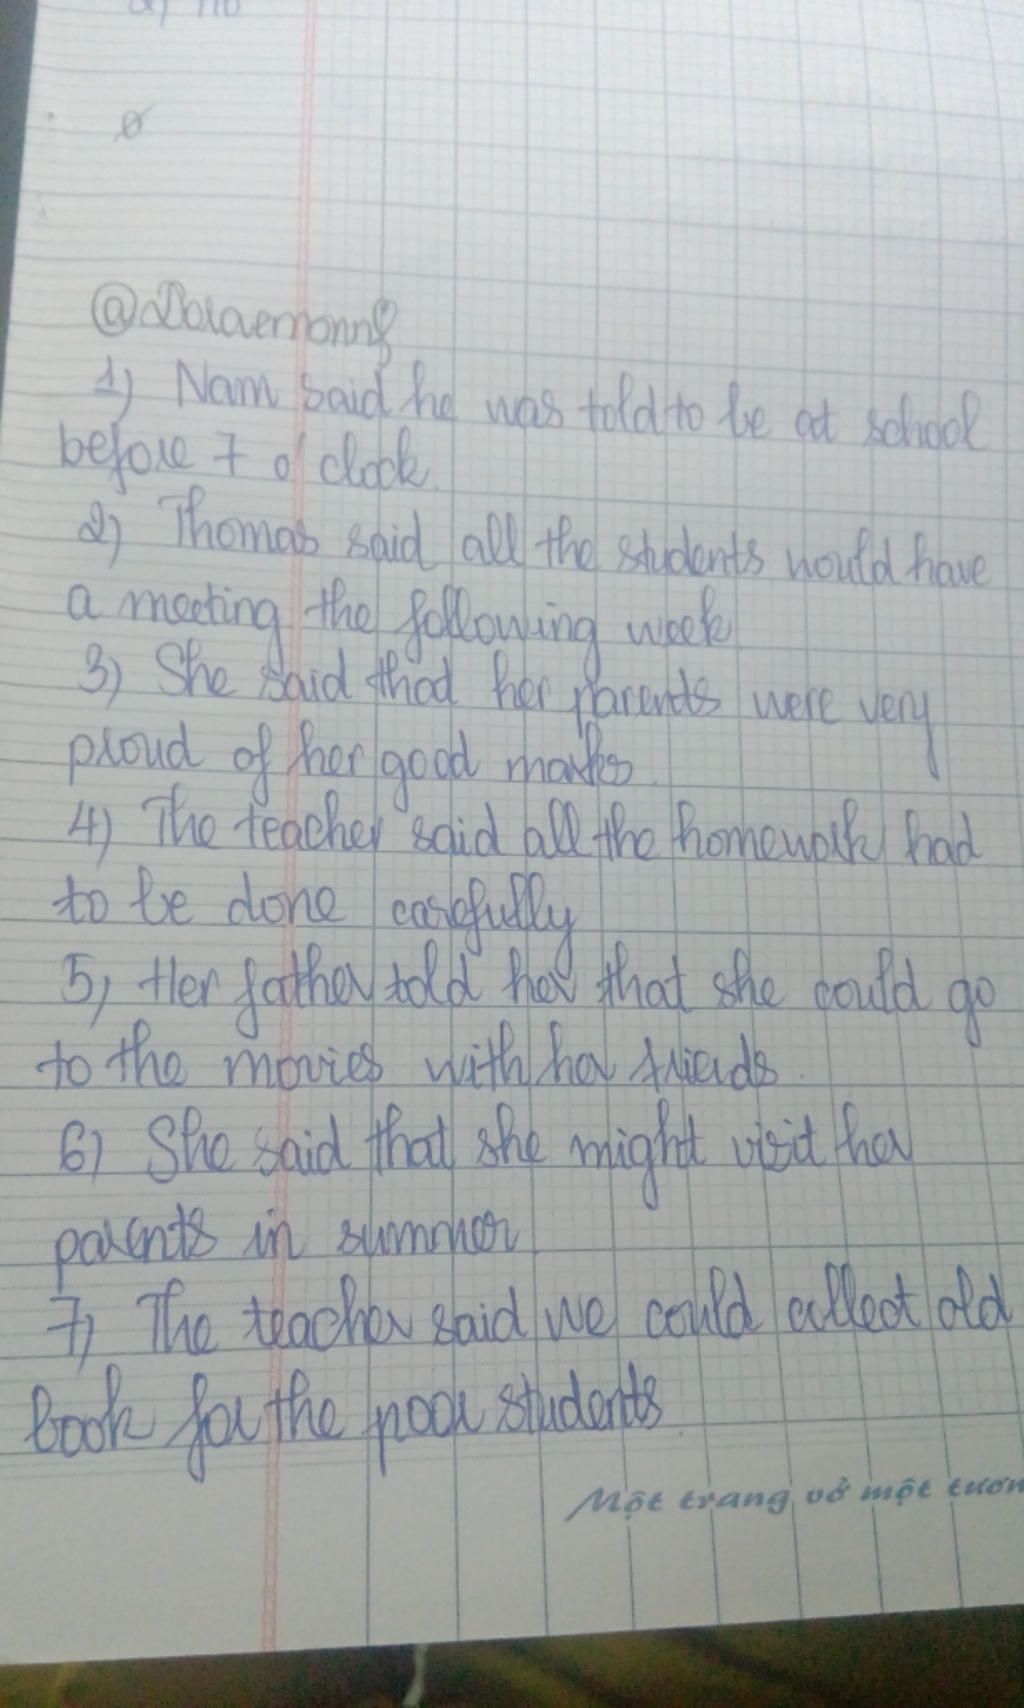 @Doraemonn8
1) Nam said he was told to be at school
before 7 o'clock.
2) Thomas said all the students would have
a meeting the following week
3) She said that her parents were very
proud of her good marks
4) The teacher said all the homework had
to be done carefully
5) Her father told her that she could go
to the movies with her friends.
6) She said that she might visit her
parents in summer
7) The teacher said we could collect old
book for the poor students
Một trang vở một